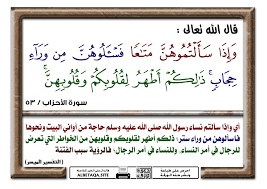 قال الله تعالى :
وَإِذَا سَأَلْتُمُوهُنَّ مَتَٰعًا فَسْـَٔلُوهُنَّ مِن وَرَآءِ
حِجَابٍ ۚ ذَٰلِكُمْ أَطْهَرُ لِقُلُوبِكُمْ وَقُلُوبِهِنَّ ۚ
سورة الأحزاب / ٥٣
أي وإذا سألتم نساء رسول الله صلى الله عليه وسلم حاجة من أواني البيت ونحوها
فاسألوهن من وراء ستر؛ ذلكم أطهر لقلوبكم وقلوبهن من الخواطر التي تعرض
للرجال في أمر النساء، وللنساء في أمر الرجال؛ فالرؤية سبب الفتنة
( التفسير الميسر )
ALBETAQA.SITE